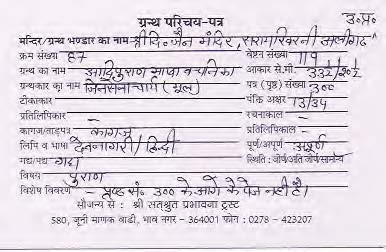 उ.प्र.
ग्रन्थ परिचय-पत्र
मन्दिर/ग्रन्थ भण्डार का नाम श्री दि. जैन मंदिर, अलीगढ
क्रम संख्या 87 वेष्टन संख्या 119
ग्रन्थ का नाम आदिपुराण भाषा वचनिका आकार से.मी.
ग्रन्थकार का नाम जिनसेनाचार्य (मूल) पत्र (पृष्ठ) संख्या 300
टीकाकार पंक्ति अक्षर 13/34
प्रतिलिपिकार रचनाकाल
कागज/ताड़पत्र कागज प्रतिलिपिकाल
लिपि व भाषा देवनागरी/हिन्दी पूर्ण/अपूर्ण अपूर्ण
गद्य/पद्य गद्य स्थिति : जीर्ण/अति जीर्ण/सामान्य
विषय पुराण
विशेष विवरण पृष्ठ सं. 300 के आगे के पेज नहीं है।
सौजन्य से : श्री सतश्रुत प्रभावना ट्रस्ट
580, जूनी माणक वाडी, भाव नगर - 364001 फोन : 0278 - 423207